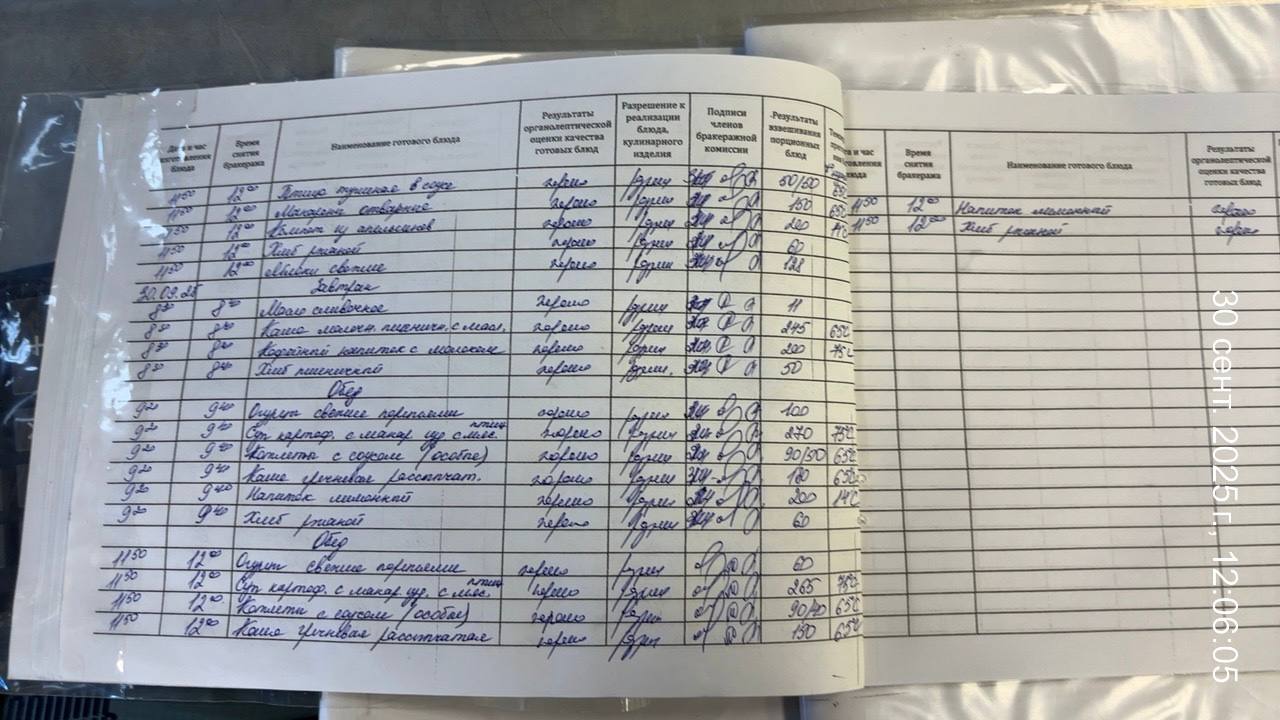 Дата и час изготовления блюда | Время снятия бракеража | Наименование готового блюда | Результаты органолептической оценки качества готовых блюд | Разрешение к реализации блюда, кулинарного изделия | Подписи членов бракеражной комиссии | Результаты взвешивания порционных блюд
11 50 | 12 00 | Птица тушеная в соусе | хорошо | 50/50
11 50 | 12 00 | Макароны отварные | хорошо | 150 | 65С
11 50 | 12 00 | Компот из апельсинов | хорошо | 200 | 14С
11 50 | 12 00 | Хлеб ржаной | хорошо | 60
11 50 | 12 00 | Яблоки свежие | хорошо | 128
30.09.25 | Завтрак
8 30 | 8 40 | Масло сливочное | хорошо | 11
8 30 | 8 40 | Каша молочн. пшеничн. с масл. | хорошо | 245 | 65С
8 30 | 8 40 | Кофейный напиток с молоком | хорошо | 200 | 75С
8 30 | 8 40 | Хлеб пшеничный | хорошо | 50
Обед
9 20 | 9 40 | Огурцы свежие порциями | хорошо | 100
9 20 | 9 40 | Суп картоф. с макар. изд. с мяс. птицы | хорошо | 270 | 75С
9 20 | 9 40 | Котлеты с соусом (особые) | хорошо | 90/50 | 65С
9 20 | 9 40 | Каша гречневая рассыпчат. | хорошо | 180 | 65С
9 20 | 9 40 | Напиток лимонный | хорошо | 200 | 14С
9 20 | 9 40 | Хлеб ржаной | хорошо | 60
Обед
11 50 | 12 00 | Огурцы свежие порциями | хорошо | 60
11 50 | 12 00 | Суп картоф. с макар. изд. с мяс. птицы | хорошо | 265 | 75С
11 50 | 12 00 | Котлеты с соусом (особые) | хорошо | 90/40 | 65С
11 50 | 12 00 | Каша гречневая рассыпчатая | хорошо | 150 | 65С
и час | Время снятия бракеража | Наименование готового блюда | Результаты органолептической оценки качества готовых блюд
11 50 | 12 00 | Напиток лимонный | хорошо
11 50 | 12 00 | Хлеб ржаной | хорошо
30 сент. 2025 г., 12:06:05